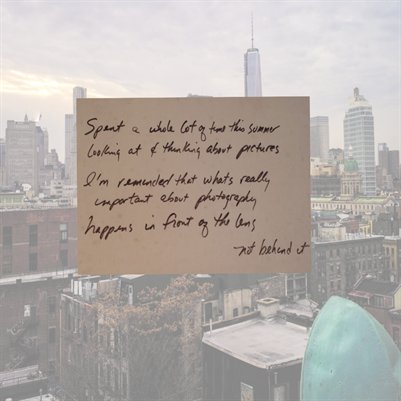 Spent a whole lot of time this summer
looking at & thinking about pictures
I'm reminded that whats really
important about photography
happens in front of the lens
not behind it